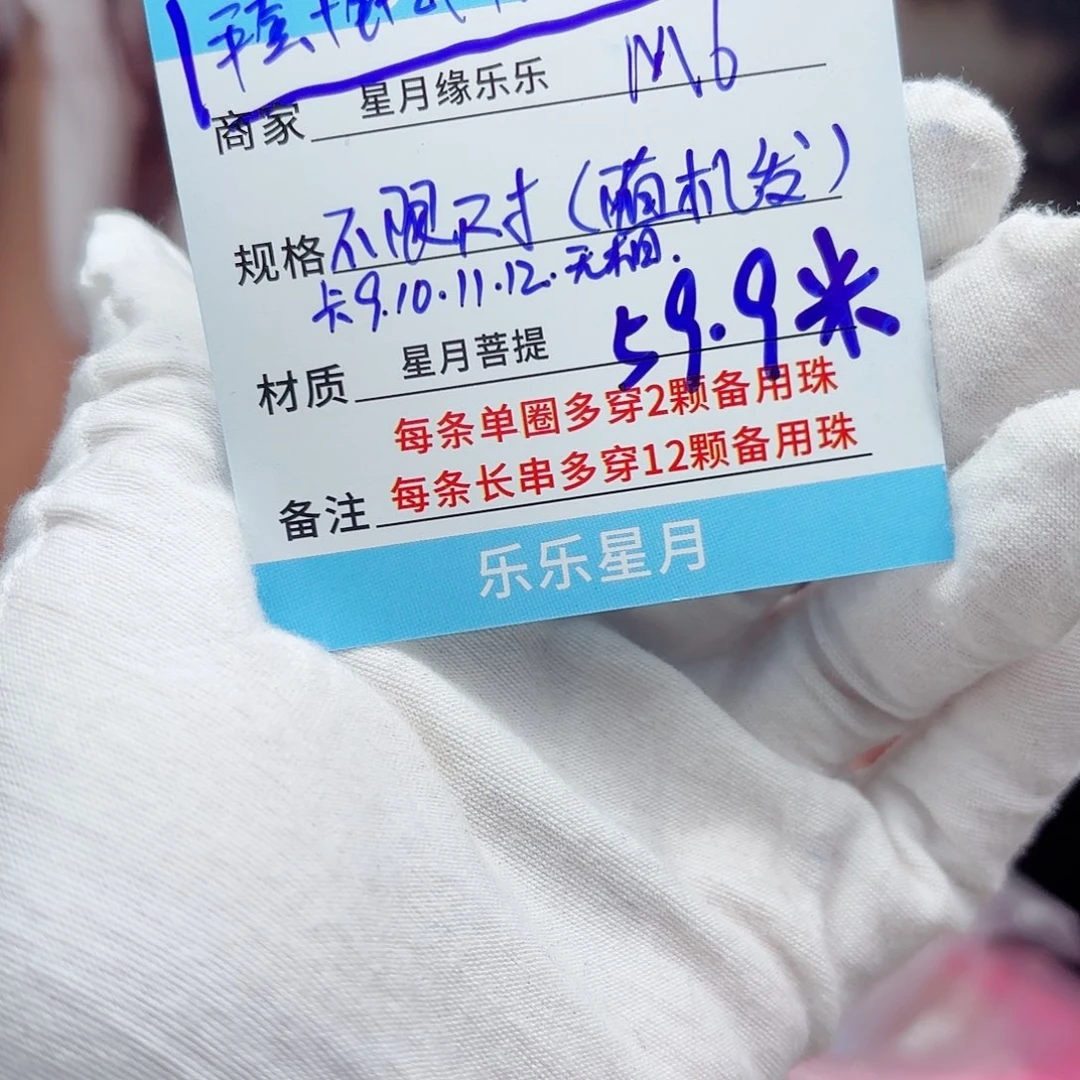 M6
商家 星月缘乐乐
规格 不限尺寸（随机发）
卡9.10.11.12.无相.
59.9米
材质 星月菩提
每条单圈多穿2颗备用珠
备注 每条长串多穿12颗备用珠
乐乐星月